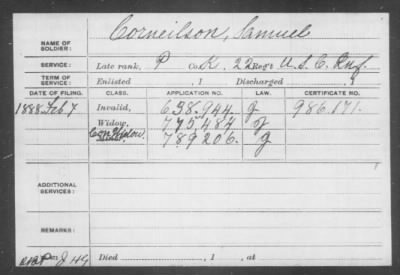 Corneilson, Samuel
NAME OF SOLDIER:
SERVICE: Late rank, P Co. K, 22 Reg't U.S.C. Inf.
TERM OF SERVICE: Enlisted , 1 Discharged , 1
DATE OF FILING. CLASS. APPLICATION NO. LAW. CERTIFICATE NO.
1888 Feb 7 Invalid, 638.944 g 986.171.
Widow, 775.484 g
Con Widow, 789206. g
ADDITIONAL SERVICES:
REMARKS:
Died , 1 , at